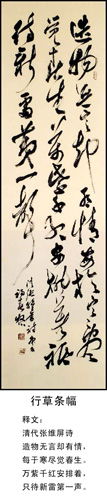 造物无言却有情每于寒尽
觉春生万紫千红安排著只
待新雷第一声
行草条幅
释文：
清代张维屏诗
造物无言却有情，
每于寒尽觉春生。
万紫千红安排着，
只待新雷第一声。